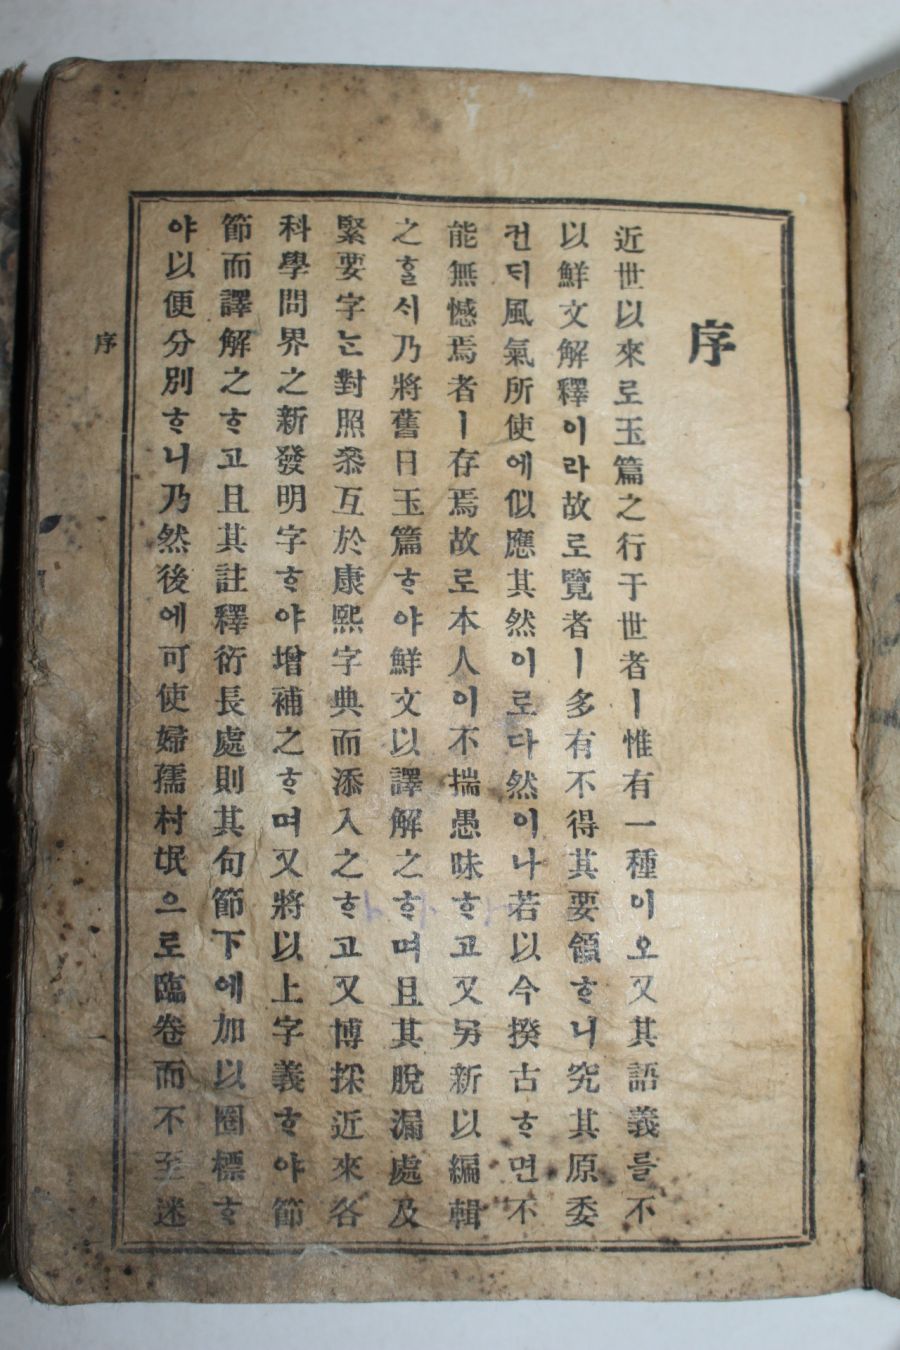 序
近世以來로玉篇之行于世者ㅣ惟有一種이오又其語義를不
以鮮文解釋이라故로覽者ㅣ多有不得其要領ᄒᆞ니究其原委
컨ᄃᆡ風氣所使에似應其然이로다然이나若以今揆古ᄒᆞ면不
能無憾焉者ㅣ存焉故로本人이不揣愚昧ᄒᆞ고又另新以編輯
之ᄒᆞᆯᄉᆡ乃將舊日玉篇ᄒᆞ야鮮文以譯解之ᄒᆞ며且其脫漏處及
緊要字는對照叅互於康熙字典而添入之ᄒᆞ고又博採近來各
科學問界之新發明字ᄒᆞ야增補之ᄒᆞ며又將以上字義ᄒᆞ야節
節而譯解之ᄒᆞ고且其註釋衍長處則其句節下에加以圈標ᄒᆞ
야以便分別ᄒᆞ니乃然後에可使婦孺村氓으로臨卷而不至迷
序